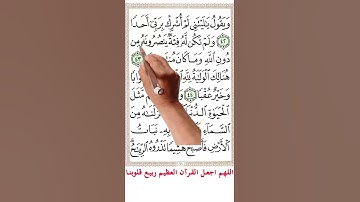 وَيَقُولُ يَٰلَيْتَنِي لَمْ أُشْرِكْ بِرَبِّيٓ أَحَدًا
٤٢ وَلَمْ تَكُن لَّهُۥ فِئَةٌ يَنصُرُونَهُۥ مِن
دُونِ ٱللَّهِ وَمَا كَانَ
هُنَالِكَ ٱلْوَلَٰيَةُ لِلَّهِ
وَخَيْرٌ عُقْبًا ٤٤
ٱلْحَيَوٰةِ
ٱلسَّمَآءِ نَبَاتُ
ٱلْأَرْضِ فَأَصْبَحَ هَشِيمًا تَذْرُوهُ ٱلرِّيَٰحُ
اللهم اجعل القرآن العظيم ربيع قلوبنا